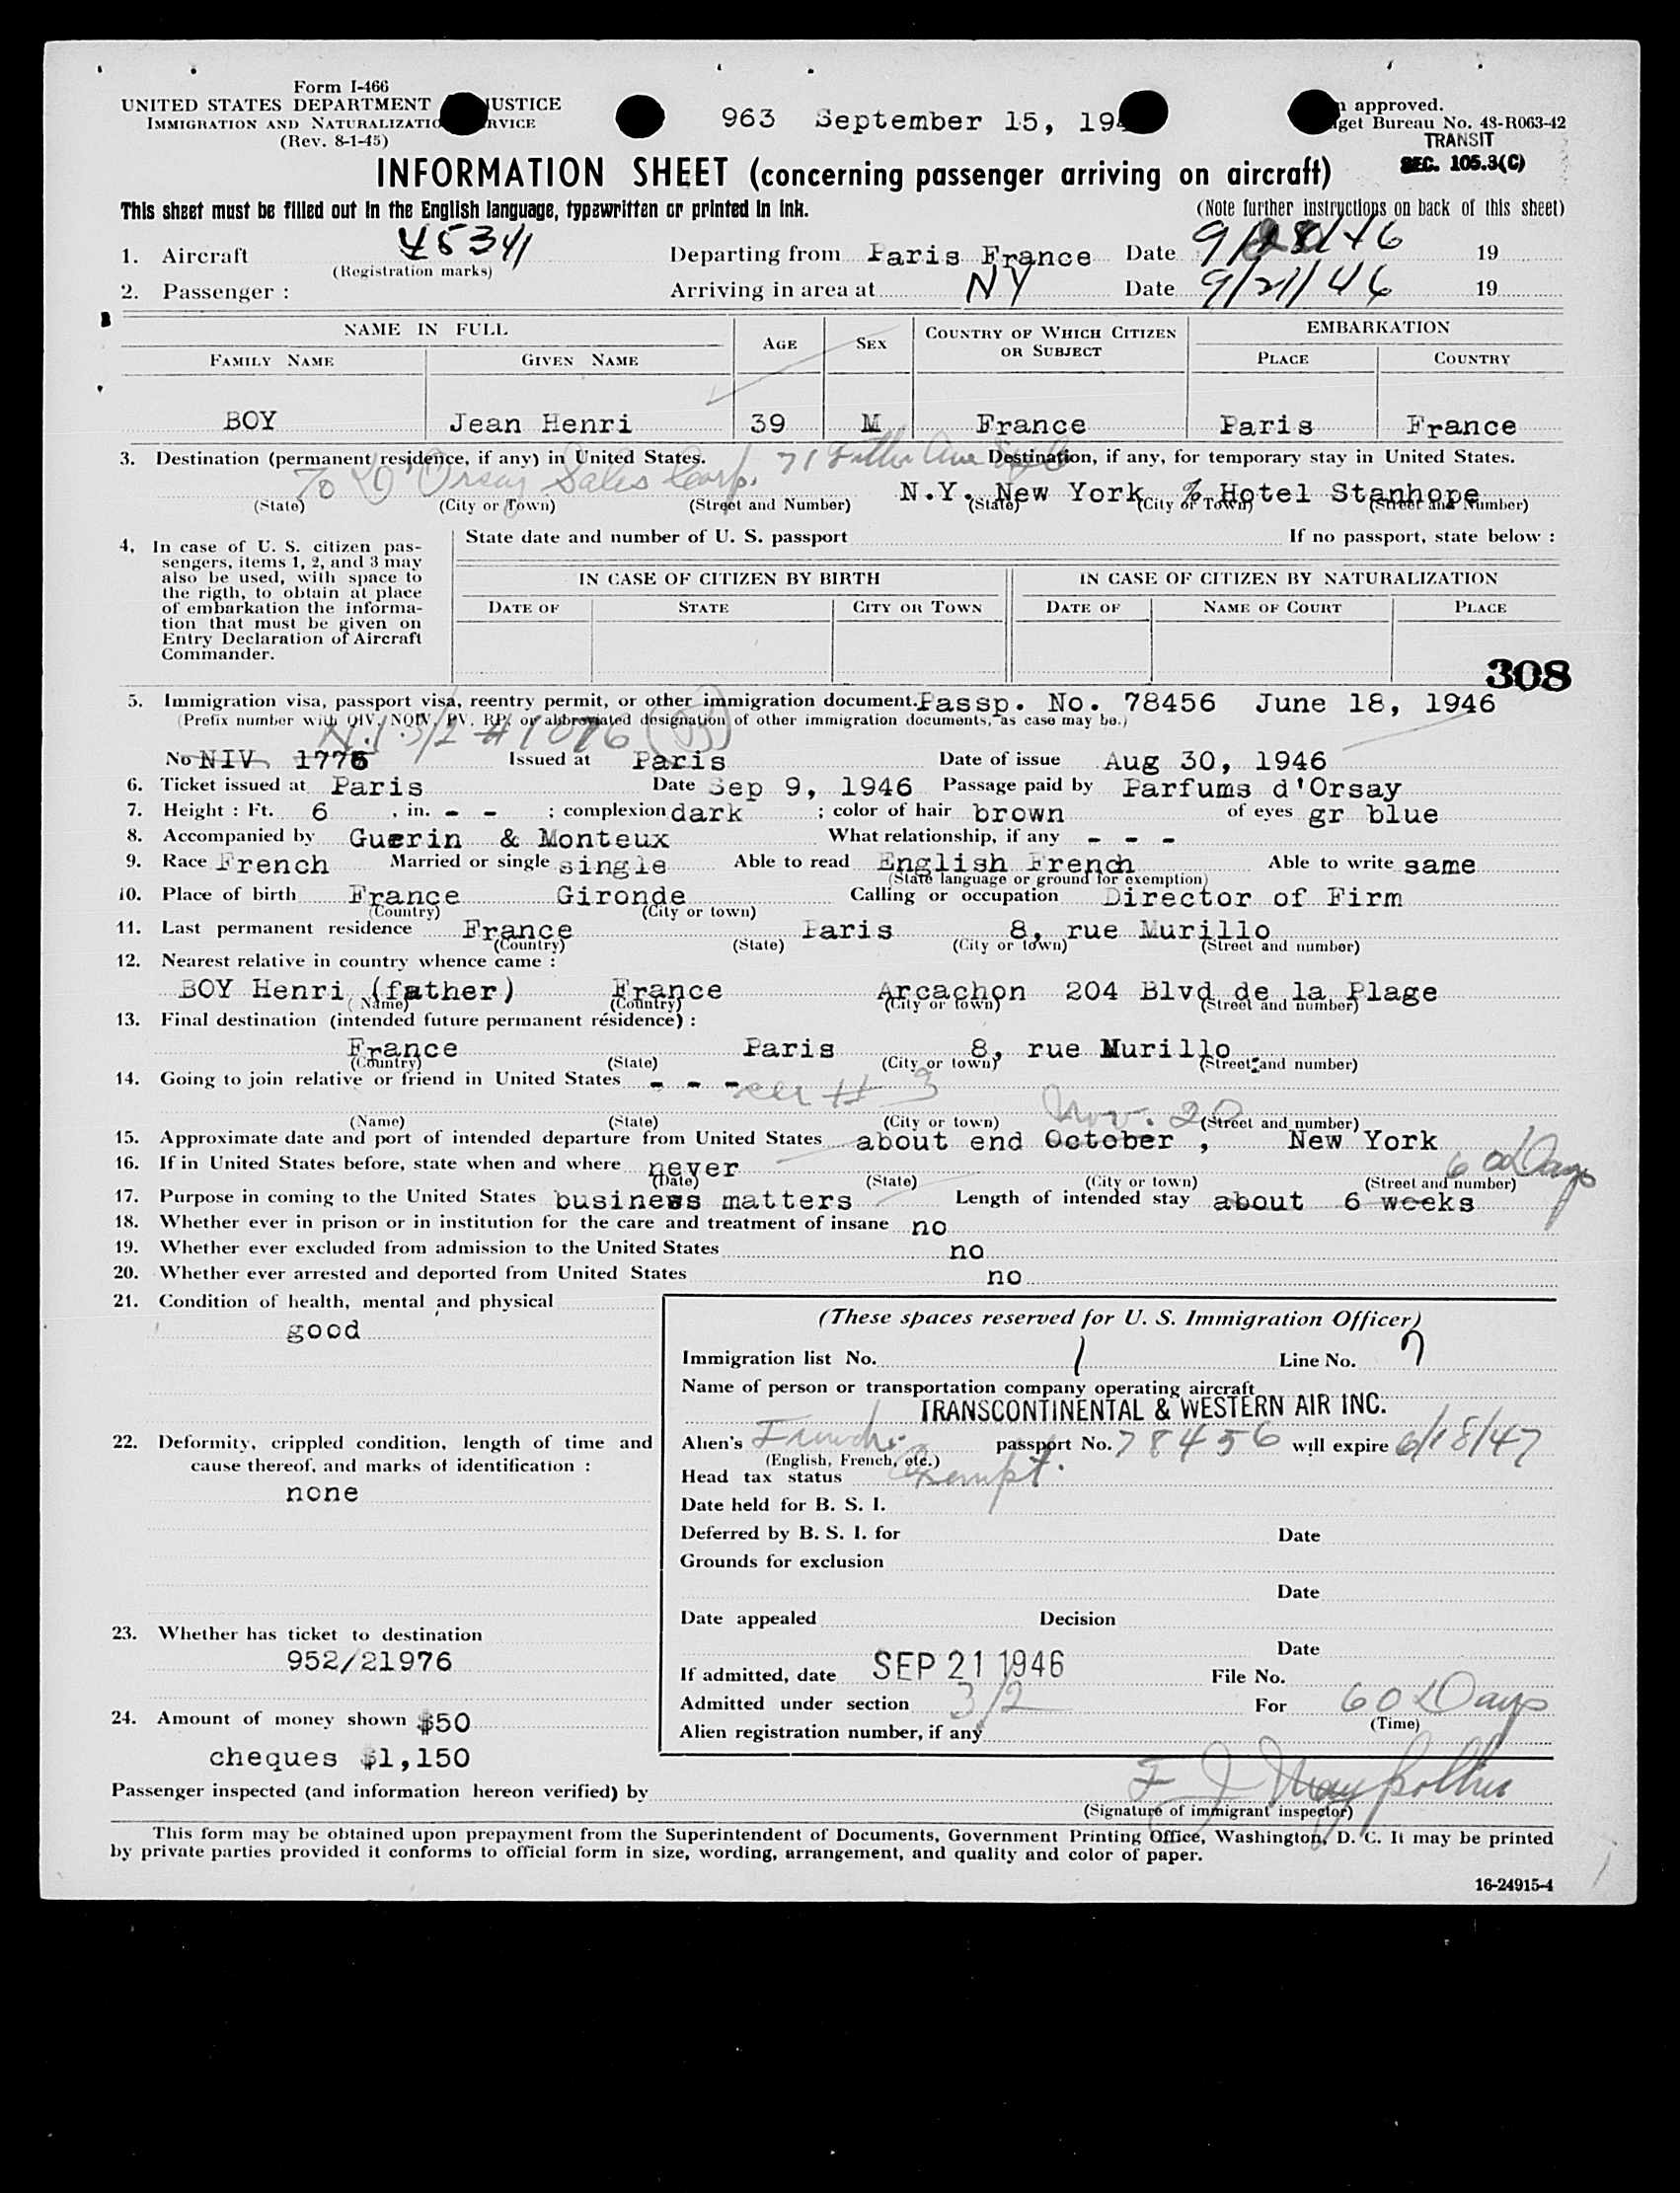 Form I-466
UNITED STATES DEPARTMENT JUSTICE
IMMIGRATION AND NATURALIZATIO RVICE
(Rev. 8-1-45)
963 September 15, 194
approved.
get Bureau No. 43-R063-42
TRANSIT
SEC. 105.3(C)
INFORMATION SHEET (concerning passenger arriving on aircraft)
This sheet must be filled out in the English language, typewritten or printed in ink.
(Note further instructions on back of this sheet)
1. Aircraft 45341 Departing from Paris France Date 19
(Registration marks)
2. Passenger : Arriving in area at NY Date 9/21/46 19
NAME IN FULL AGE SEX COUNTRY OF WHICH CITIZEN OR SUBJECT EMBARKATION
FAMILY NAME GIVEN NAME PLACE COUNTRY
BOY Jean Henri 39 M France Paris France
3. Destination (permanent residence, if any) in United States. Destination, if any, for temporary stay in United States.
To D'Orsay Sales Corp. 71
N.Y. New York % Hotel Stanhope
(State) (City or Town) (Street and Number) (State) (City or Town) (Street and Number)
4. In case of U. S. citizen pas-
sengers, items 1, 2, and 3 may
also be used, with space to
the rigth, to obtain at place
of embarkation the informa-
tion that must be given on
Entry Declaration of Aircraft
Commander.
State date and number of U. S. passport If no passport, state below :
IN CASE OF CITIZEN BY BIRTH IN CASE OF CITIZEN BY NATURALIZATION
DATE OF STATE CITY OR TOWN DATE OF NAME OF COURT PLACE
308
5. Immigration visa, passport visa, reentry permit, or other immigration document. Passp. No. 78456 June 18, 1946
(Prefix number with QIV, NQIV, PV, RP, or abbreviated designation of other immigration documents, as case may be.)
#1076
No NIV 1776 Issued at Paris Date of issue Aug 30, 1946
6. Ticket issued at Paris Date Sep 9, 1946 Passage paid by Parfums d'Orsay
7. Height : Ft. 6 , in. - - ; complexion dark ; color of hair brown of eyes gr blue
8. Accompanied by Guerin & Monteux What relationship, if any - - -
9. Race French Married or single single Able to read English French Able to write same
(State language or ground for exemption)
10. Place of birth France Gironde Calling or occupation Director of Firm
(Country) (City or town)
11. Last permanent residence France Paris 8, rue Murillo
(Country) (State) (City or town) (Street and number)
12. Nearest relative in country whence came :
BOY Henri (father) France Arcachon 204 Blvd de la Plage
(Name) (Country) (City or town) (Street and number)
13. Final destination (intended future permanent résidence) :
France Paris 8, rue Murillo
(Country) (State) (City or town) (Street and number)
14. Going to join relative or friend in United States - - -
# 3 Nov. 20
(Name) (State) (City or town) (Street and number)
15. Approximate date and port of intended departure from United States about end October , New York
16. If in United States before, state when and where never 60 Days
(Date) (State) (City or town) (Street and number)
17. Purpose in coming to the United States business matters Length of intended stay about 6 weeks
18. Whether ever in prison or in institution for the care and treatment of insane no
19. Whether ever excluded from admission to the United States no
20. Whether ever arrested and deported from United States no
21. Condition of health, mental and physical
good
22. Deformity, crippled condition, length of time and
cause thereof, and marks of identification :
none
23. Whether has ticket to destination
952/21976
24. Amount of money shown $50
cheques $1,150
(These spaces reserved for U. S. Immigration Officer)
Immigration list No. 1 Line No. 7
Name of person or transportation company operating aircraft
TRANSCONTINENTAL & WESTERN AIR INC.
Alien's French passport No. 78456 will expire 6/18/47
(English, French, etc.)
Head tax status Exempt.
Date held for B. S. I.
Deferred by B. S. I. for Date
Grounds for exclusion
Date
Date appealed Decision
Date
If admitted, date SEP 21 1946 File No.
Admitted under section 3/2 For 60 Days
(Time)
Alien registration number, if any
Passenger inspected (and information hereon verified) by
(Signature of immigrant inspector)
This form may be obtained upon prepayment from the Superintendent of Documents, Government Printing Office, Washington, D. C. It may be printed
by private parties provided it conforms to official form in size, wording, arrangement, and quality and color of paper.
16-24915-4